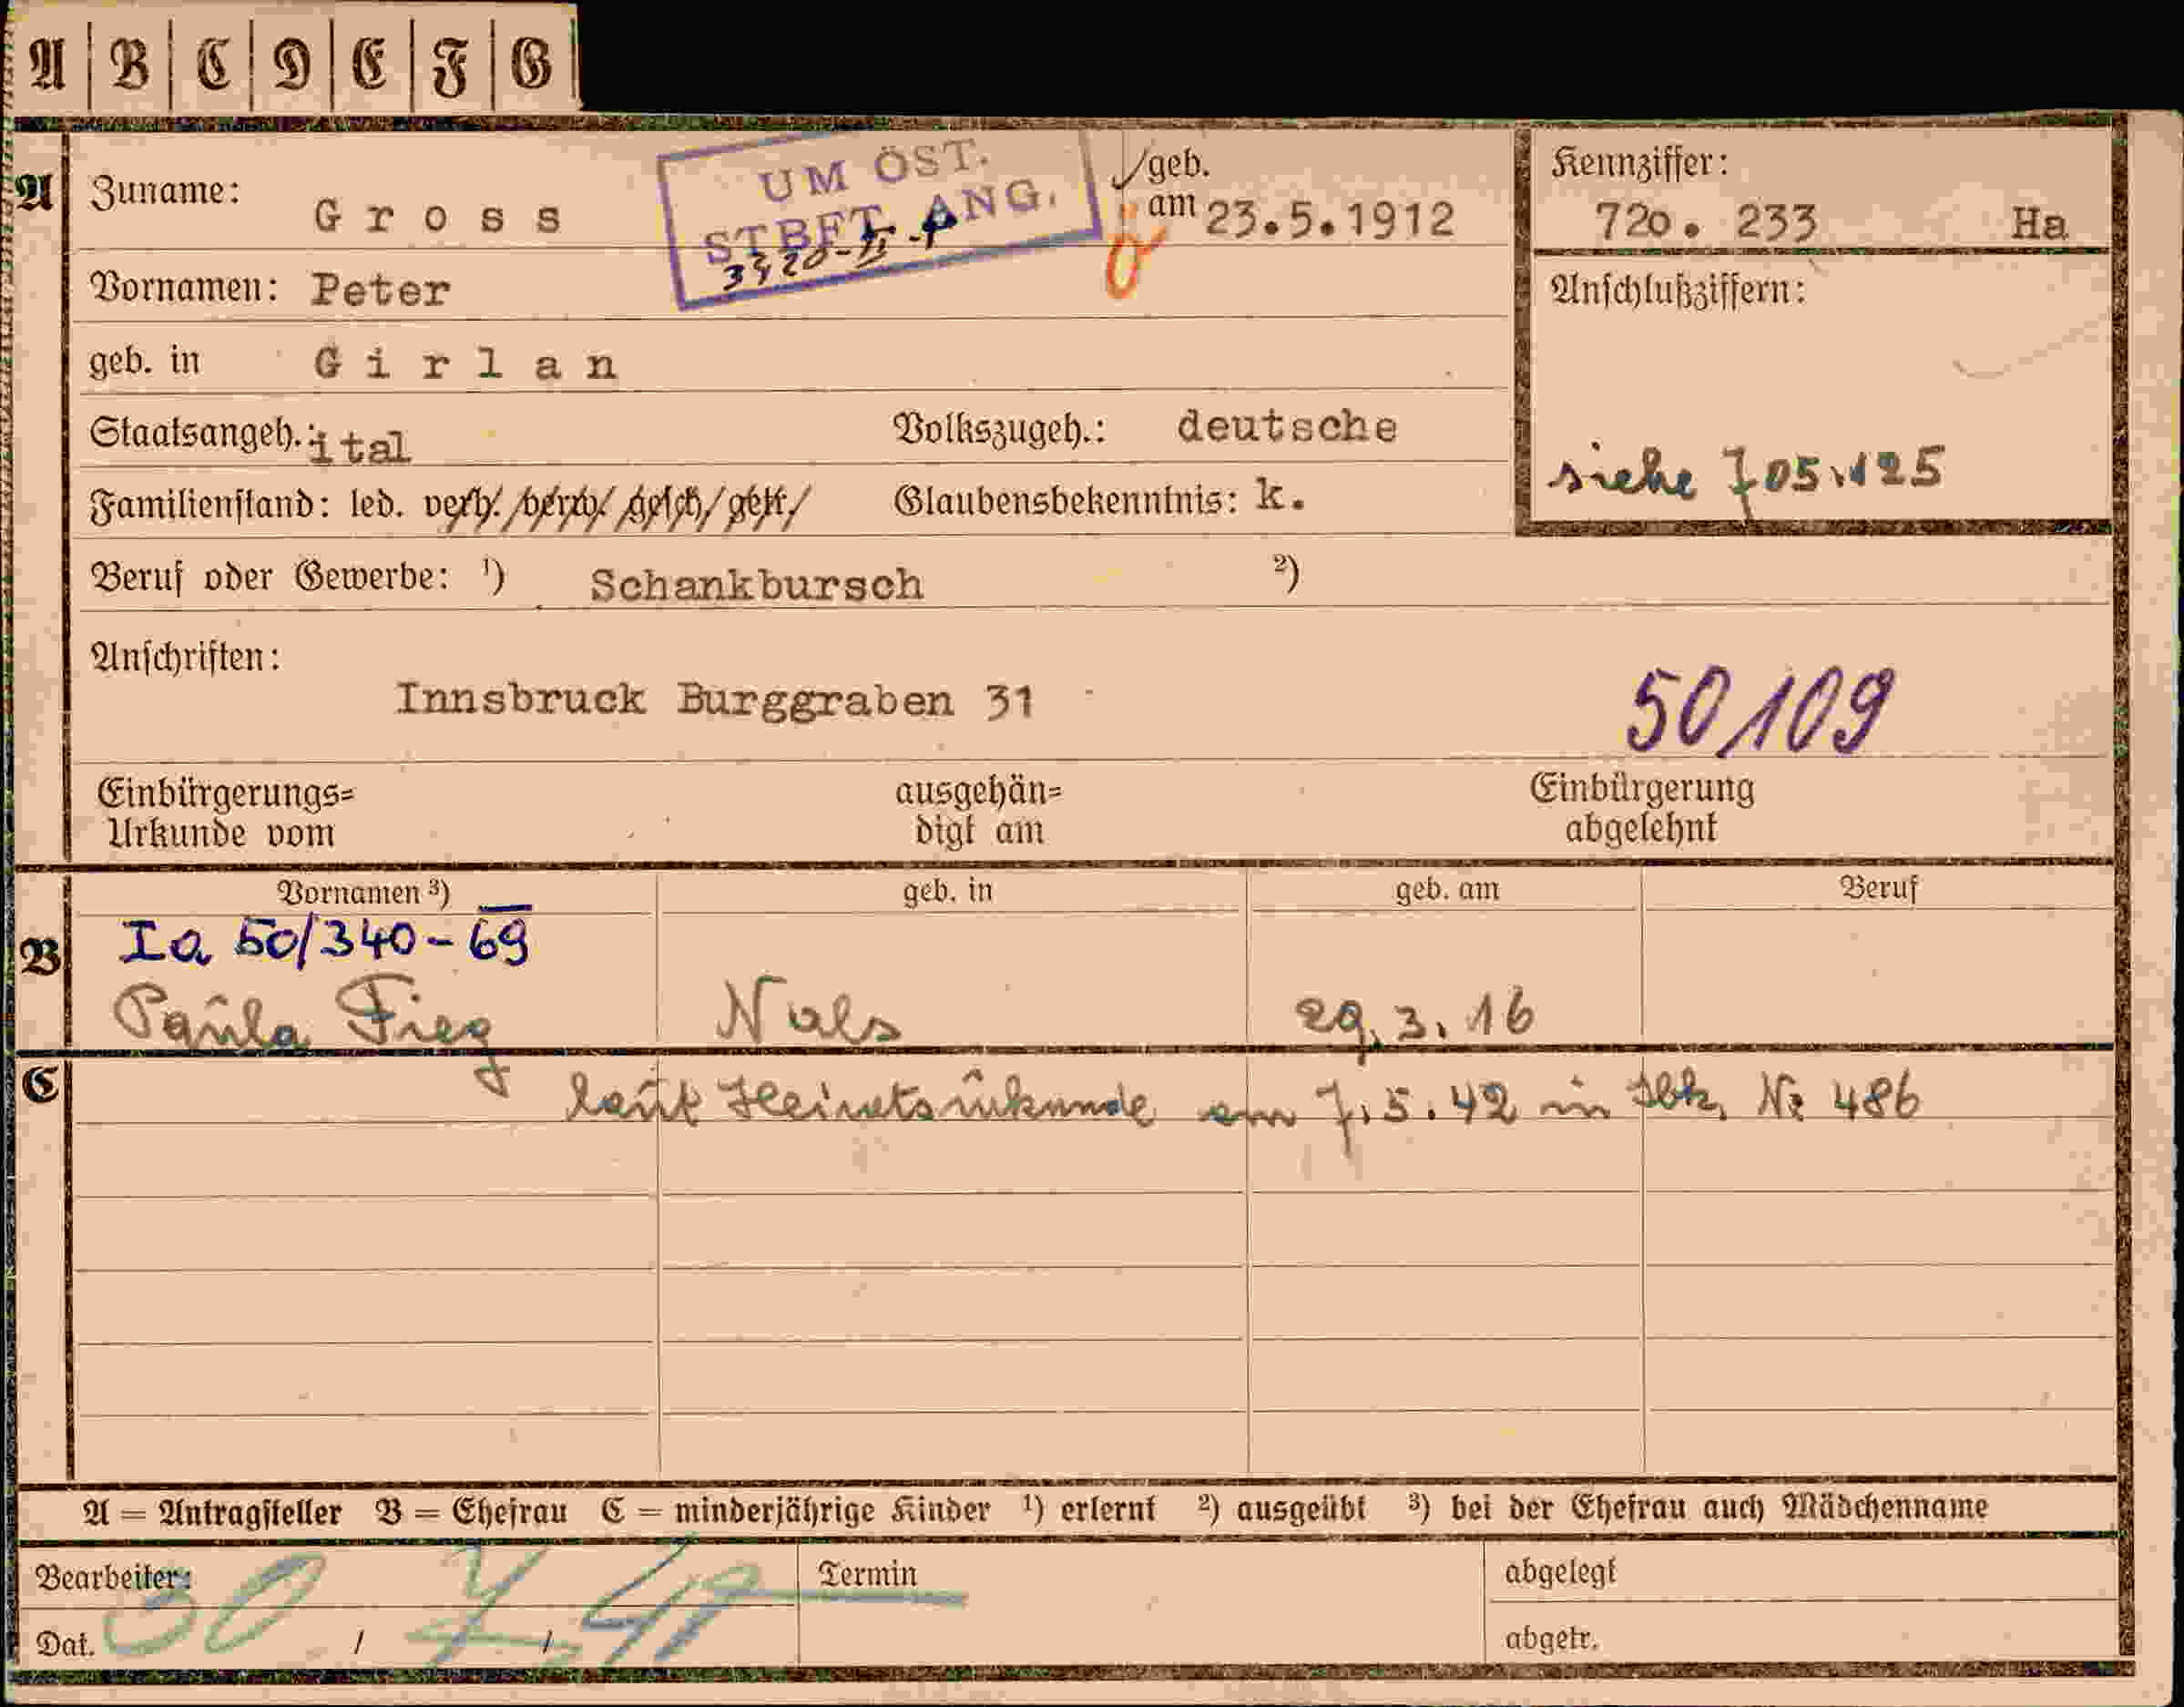 A B C D E F G
A Zuname: Gross
UM ÖST.
STBFT. ANG.
3420-II-
geb.
am 23.5.1912
Kennziffer:
720. 233 Ha
Vornamen: Peter
Anschlußziffern:
geb. in Girlan
Staatsangeh.: ital Volkszugeh.: deutsche
siehe 705.125
Familienstand: led. verh. verw. gesch. getr. Glaubensbekenntnis: k.
Beruf oder Gewerbe: ¹) Schankbursch ²)
Anschriften:
Innsbruck Burggraben 31
50109
Einbürgerungs=
Urkunde vom
ausgehän=
digt am
Einbürgerung
abgelehnt
Vornamen ³) geb. in geb. am Beruf
B Ia 50/340-69
Paula Fieg Nals 29.3.16
C
laut Heiratsurkunde am 7.5.42 in Ibk. Nr 486
A = Antragsteller B = Ehefrau C = minderjährige Kinder ¹) erlernt ²) ausgeübt ³) bei der Ehefrau auch Mädchenname
Bearbeiter: Termin abgelegt
Dat. / / abgetr.